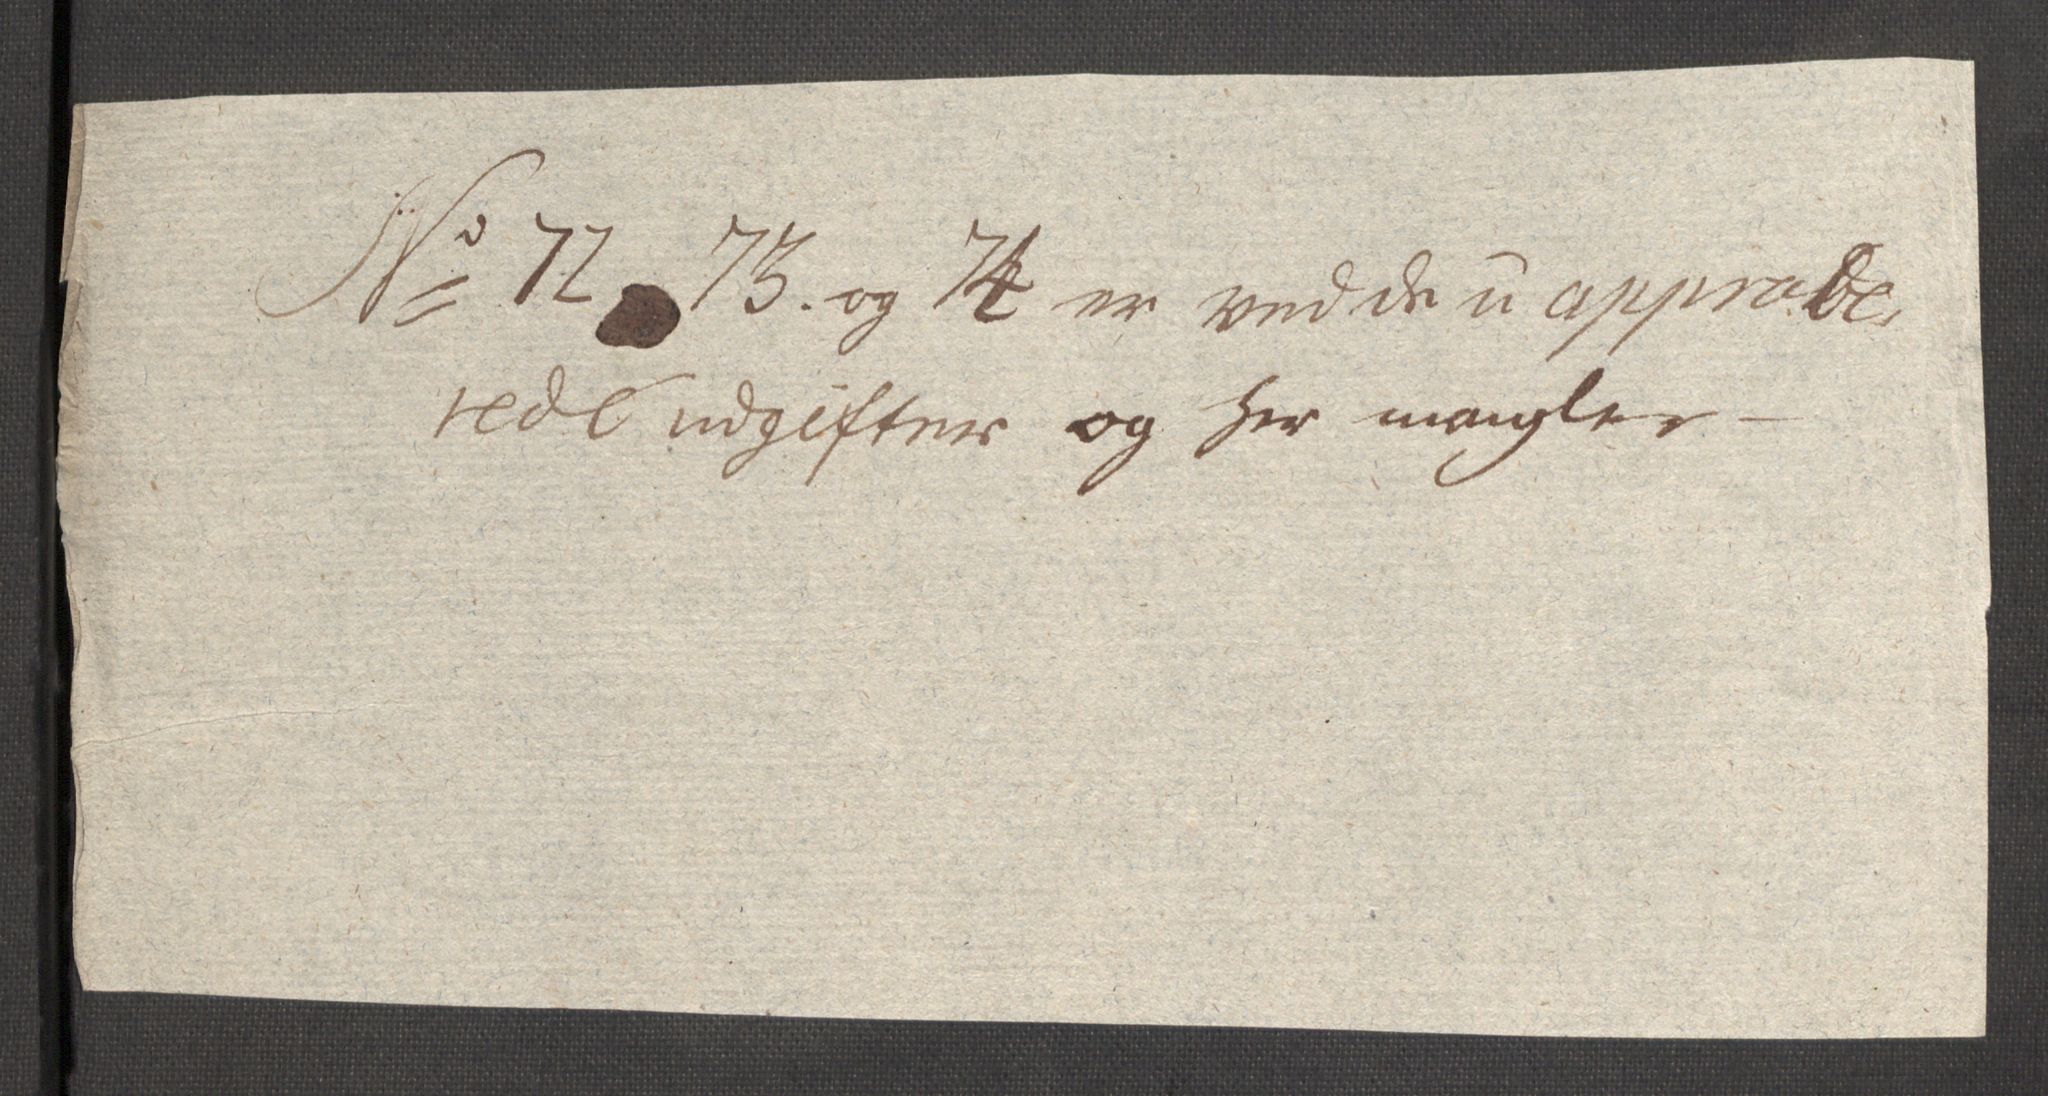 No 72 73. og 74 er ved de u approbe,
rede udgifter og her mangler